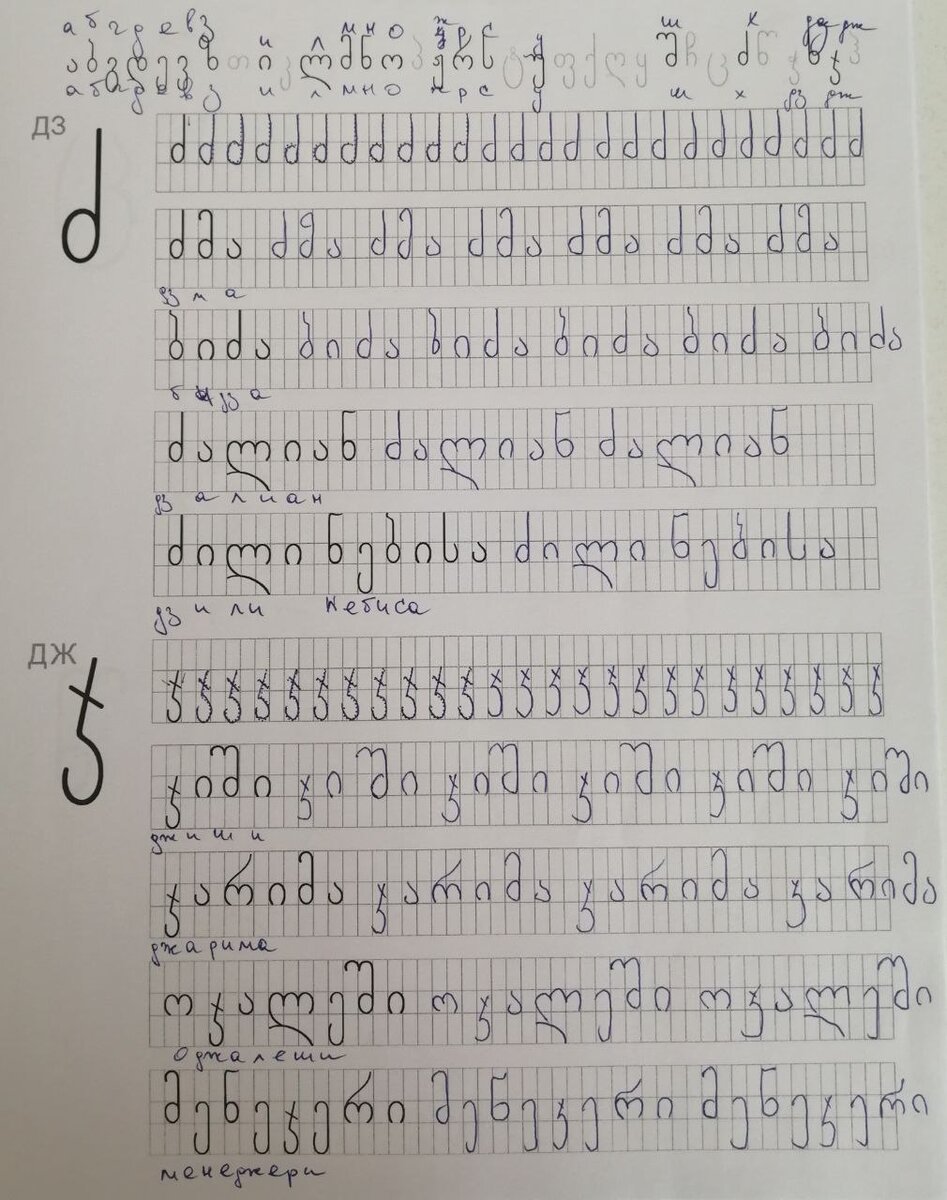 а б г д е в з и л м н о ж р с ш х дз дж
ა ბ გ დ ე ვ ზ თ ი კ ლ მ ნ ო პ ჟ რ ს ტ უ ფ ქ ღ ყ შ ჩ ც ძ წ ჭ ხ ჯ ჰ
а б г д е в з и л м н о ж р с у ш х дз дж
ДЗ
ძ
ძ ძ ძ ძ ძ ძ ძ ძ ძ ძ ძ ძ ძ ძ ძ ძ ძ ძ ძ ძ ძ ძ ძ ძ ძ
ძმა ძმა ძმა ძმა ძმა ძმა ძმა
дз м а
ბიძა ბიძა ბიძა ბიძა ბიძა ბიძა
б и дз а
ძალიან ძალიან ძალიან
дз а л и а н
ძილი ნებისა ძილი ნებისა
дз и ли небиса
ДЖ
ჯ
ჯ ჯ ჯ ჯ ჯ ჯ ჯ ჯ ჯ ჯ ჯ ჯ ჯ ჯ ჯ ჯ ჯ ჯ ჯ ჯ ჯ ჯ ჯ ჯ ჯ
ჯიში ჯიში ჯიში ჯიში ჯიში ჯიში
дж и ш и
ჯარიმა ჯარიმა ჯარიმა ჯარიმა
джарима
ოჯალეში ოჯალეში ოჯალეში
оджалеши
მენეჯერი მენეჯერი მენეჯერი
менеджери